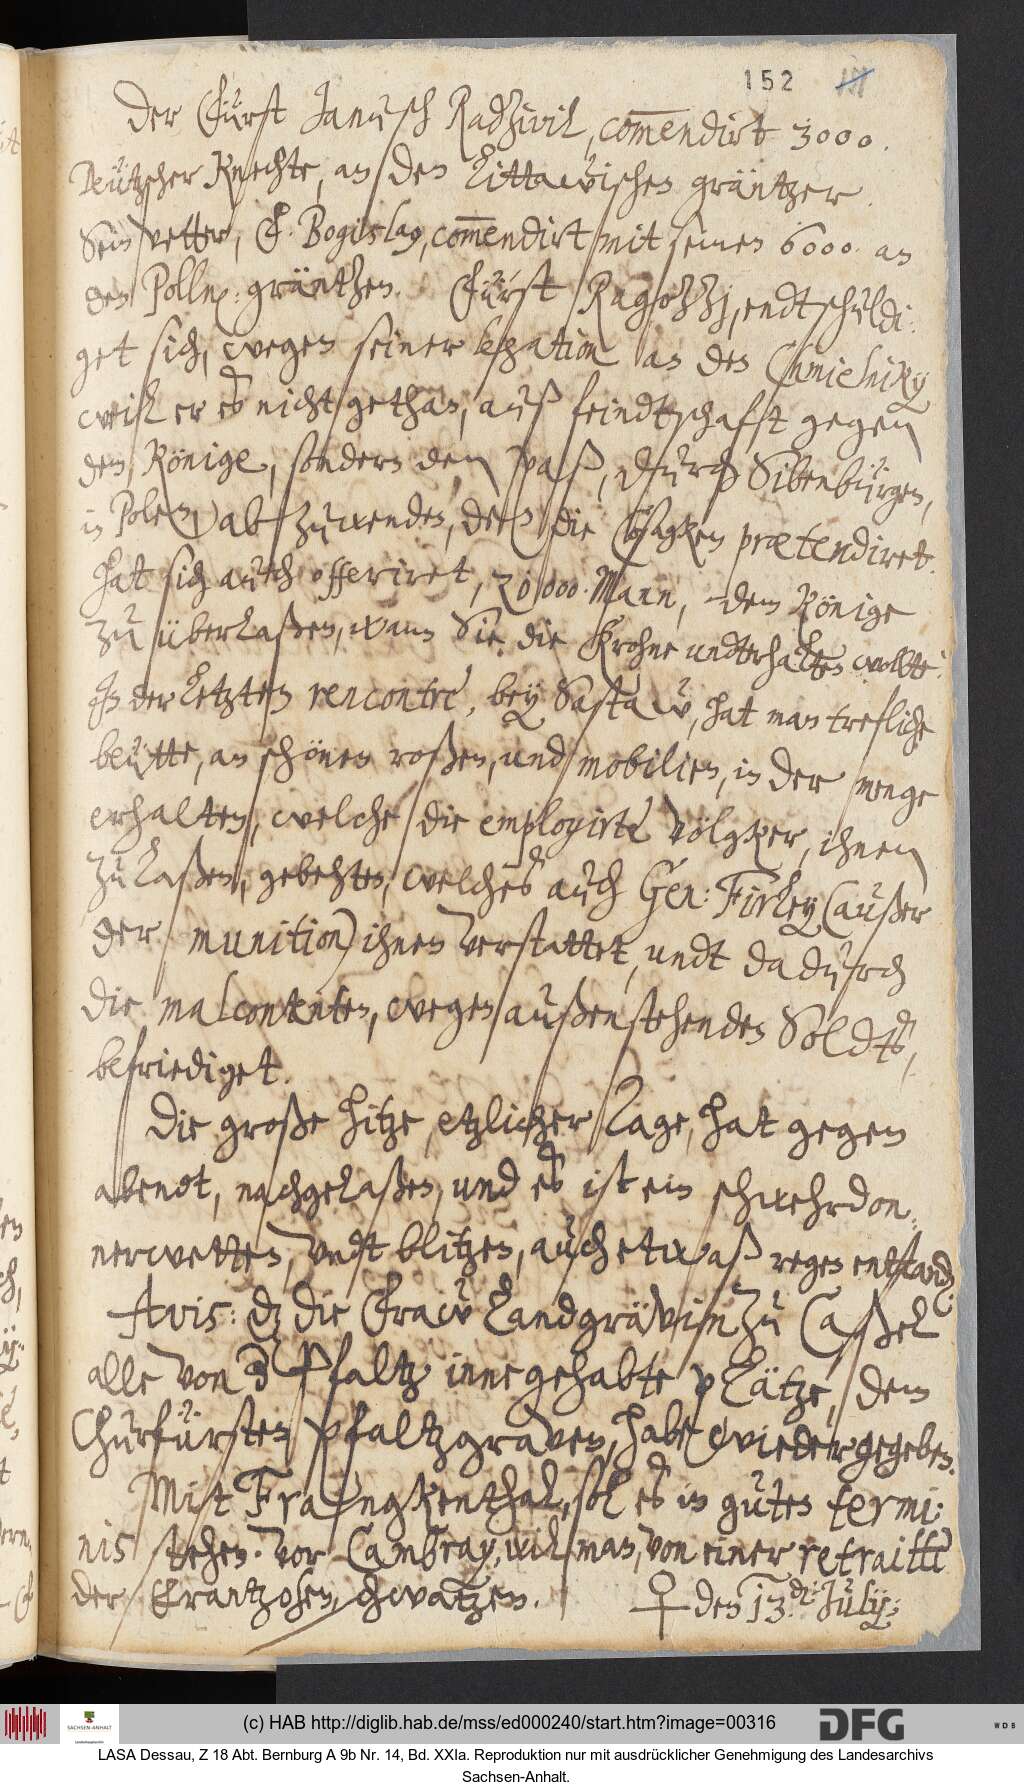 152
Der Fürst Janusch Radzivil, com̄endirt 3000.
Deützscher Knechte, an den Littawischen gräntzen
Sein vetter, F. Bogislaw, com̄endirt mit seinen 6000. an
den Polln: gräntzen. Fürst Ragozzj, endtschuldi:
get sich, wegen seiner legation an den Chmielniky
weil er es nicht gethan, auß feindtschafft gegen
dem Könige, sondern den paß, durch Sibenbürgen,
in Polen abzuwenden, den die Cosagken prætendiret.
Hat sich auch offeriret, 20000. Mann, dem Könige
zu überlaßen, wann Sie die Krohne undterhalten wollte.
In der letzten rencontre, bey Saslaw, hat man trefliche
beütte, an schönen roßen, und mobilien, in der menge
erhalten, welche die employirte Völgker, ihnen
zu laßen, gebehten, welches auch Gen: Firley (außer
der munition) ihnen verstattet, undt dadurch
die malcontenten, wegen außenstehenden Soldts,
befriediget.
Die große hitze, etzlicher Tage, hat gegen
abendt, nachgelaßen, und es ist ein schwehr don:
nerwetter, undt blitzen, auch etwaß regen entstanden.
Avis: daß die Fraw Landgrävin zu Caßel
alle von der Pfaltz innegehabte plätze, dem
Churfürsten Pfaltzgraven, habe wiedergegeben.
Mit Frangkenthal, sol es in guten termi:
nis stehen. Vor Cambray, wil man, von einer retraitte
der Frantzosen, schwatzen. ♀ den 13. July:
(c) HAB http://diglib.hab.de/mss/ed000240/start.htm?image=00316
SACHSEN-ANHALT
DFG
WDB
LASA Dessau, Z 18 Abt. Bernburg A 9b Nr. 14, Bd. XXIa. Reproduktion nur mit ausdrücklicher Genehmigung des Landesarchivs
Sachsen-Anhalt.